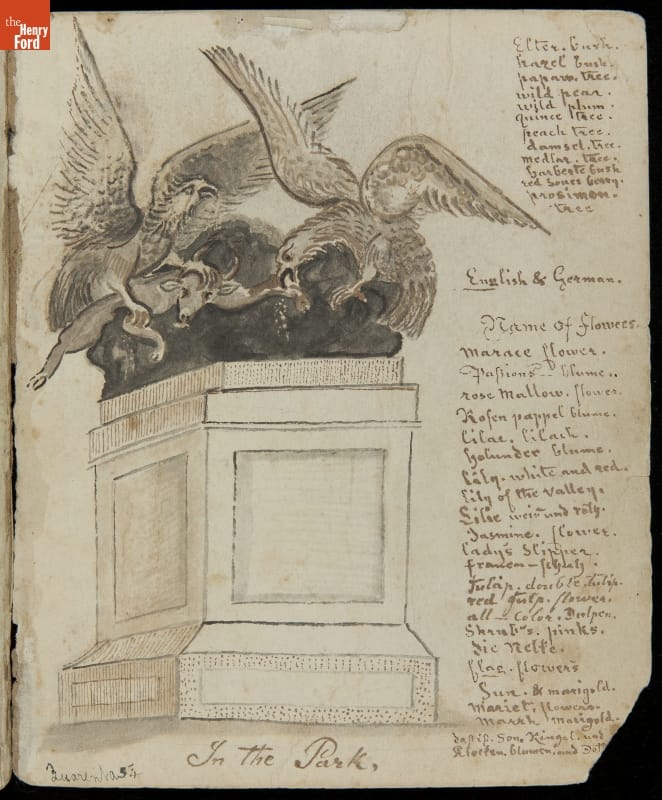 the
Henry
Ford
Elter. bush.
hazel bush.
papaw. tree.
wild pear.
wild plum.
quince tree.
peach tree.
damsel. tree.
medlar. tree.
barberte bush
red souer berry.
prosimon.
tree
English & German.
Name of Flowers.
marace flower.
Pasions blume..
rose Mallow. flower.
Rosen pappel blume.
Lilac. Lilach.
Holunder blume.
Lily. white and red.
Lily of the valley.
Lilie weis und röth.
Jasmine. flower.
ladys Slipper.
frauen - schuh.
Tulip. double tulip.
red Tulp. flower.
all - color.
Shrub's. pinks.
Die Nelke.
flag. flowers
Sun. & marigold.
Mariet. flowers.
Marsh Marigold.
das ist. Son. Ringel. und
Klocken. blumen. und Dott
In the Park.